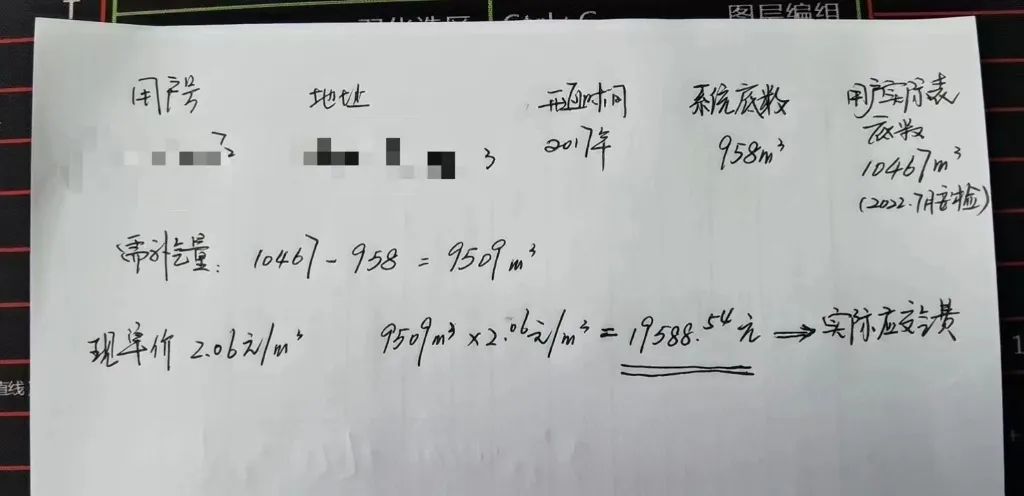 双休选区 Ctrl+C 图层编组
用户号 地址 开通时间 系统底数 用户实际表底数
72 3 2017年 958m³ 10467m³
(2022.7月安检)
需补气量: 10467-958=9509m³
现单价 2.06元/m³ 9509m³×2.06元/m³=19588.54元⇒实际应交气费
直线